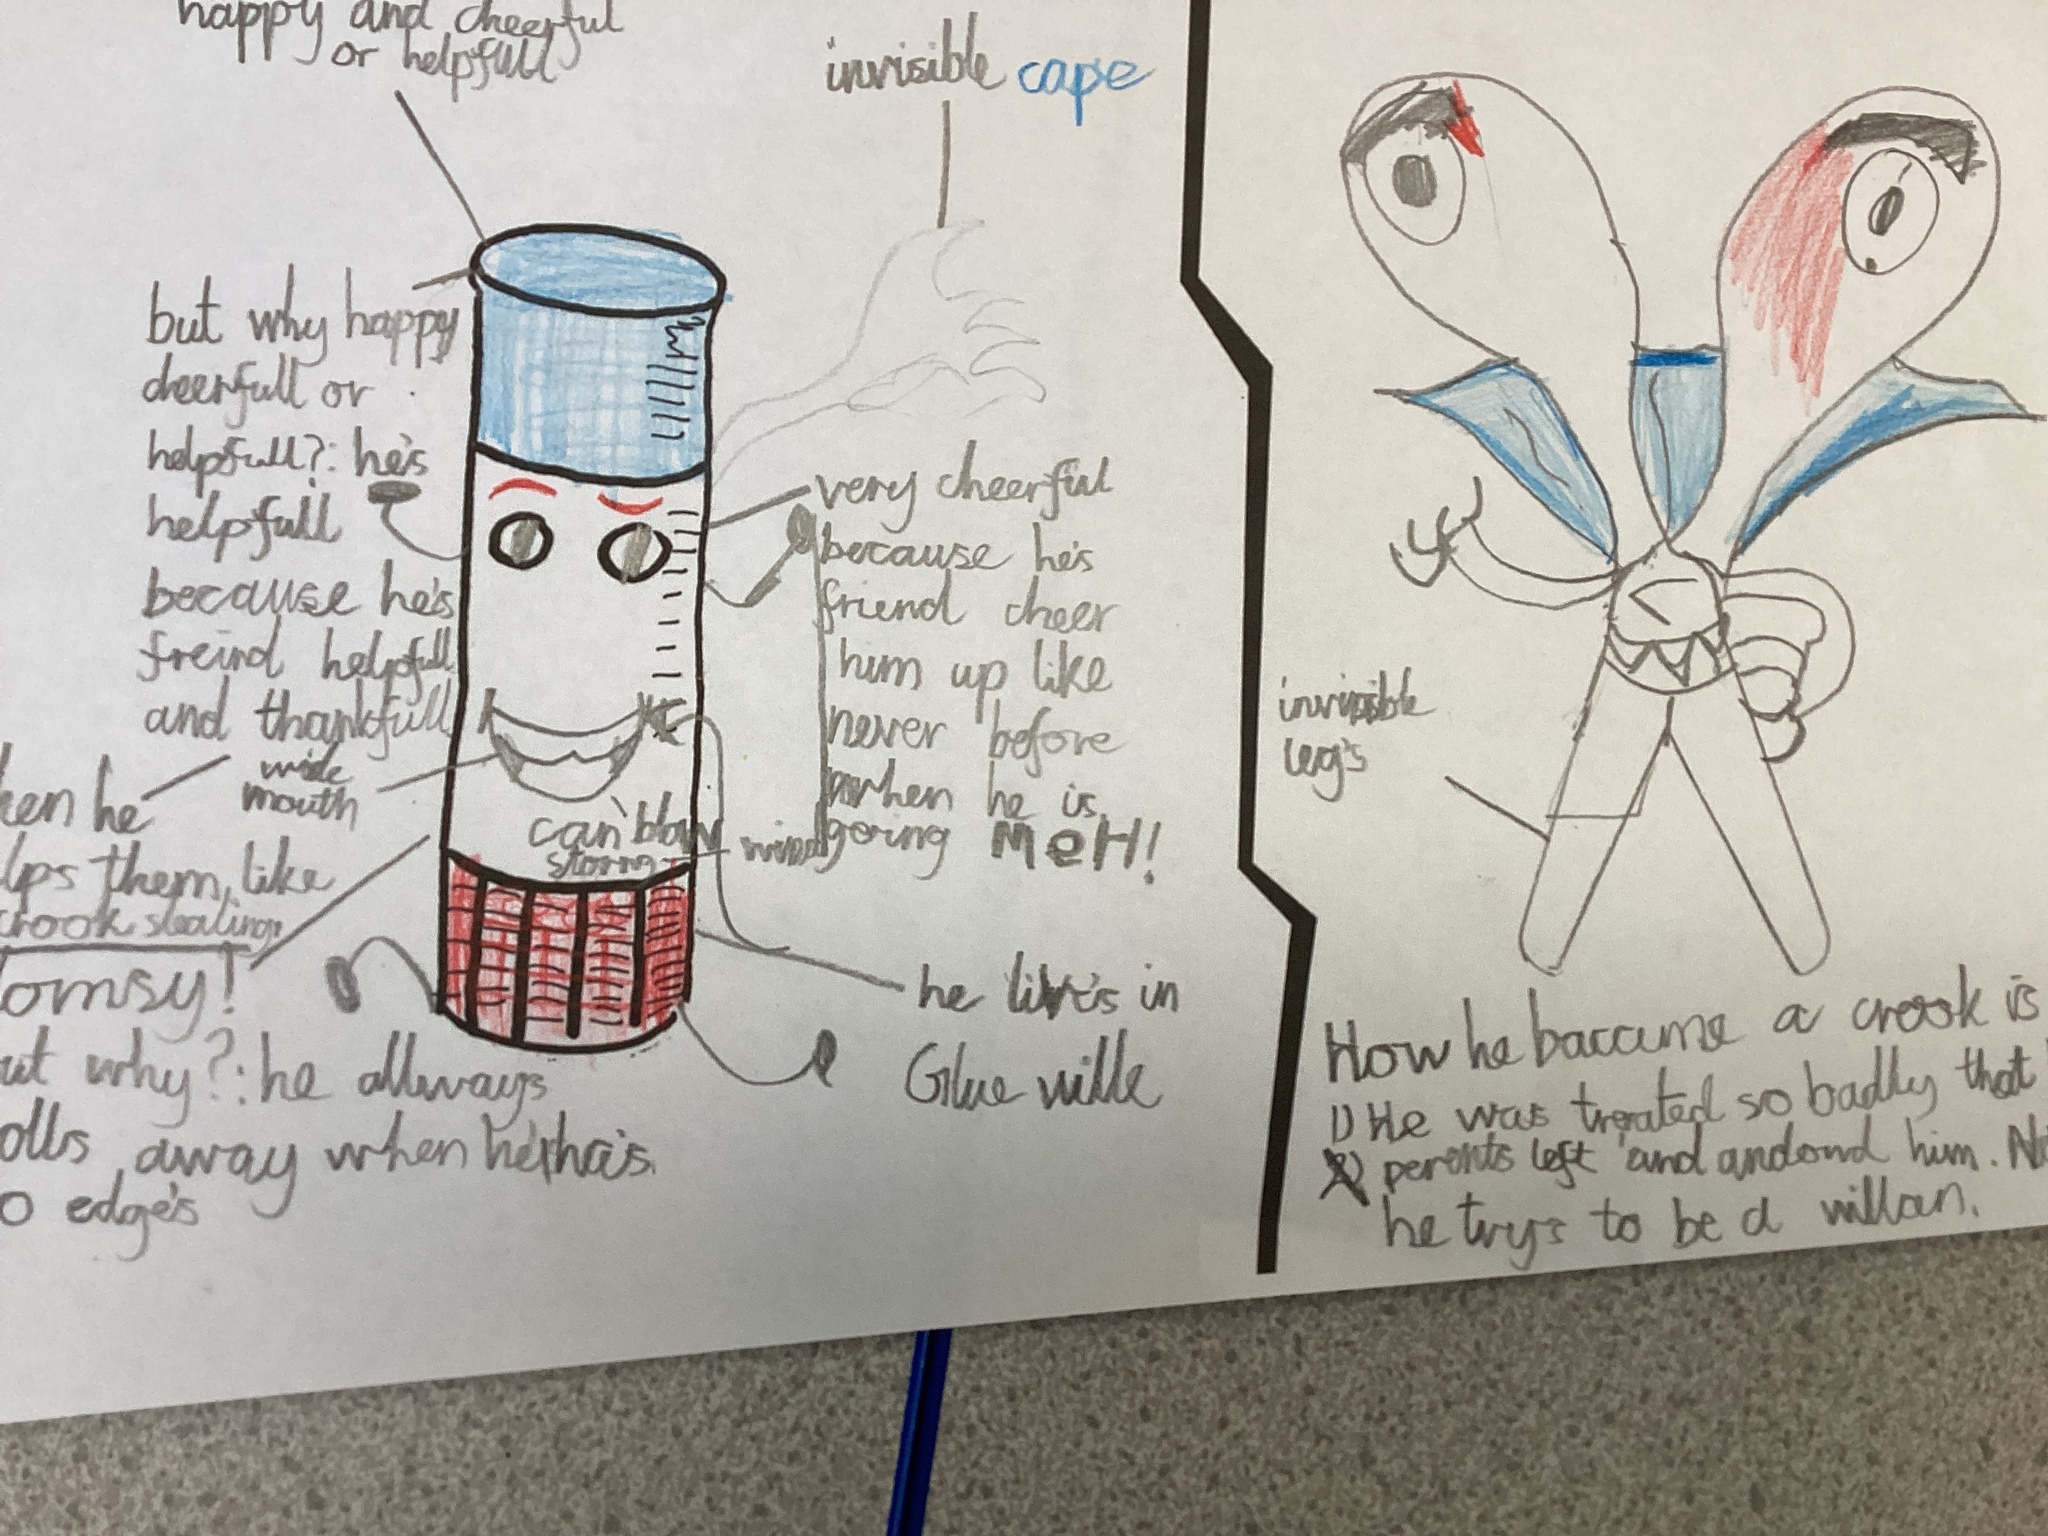 happy and cheerful
or helpfull
invisible cape
but why happy
cheerfull or
helpfull?: he's
helpfull
because he's
freind helpfull
and thankfull
wide
mouth
hen he
lps them, like
crook stealing.
lomsy!
ut why?: he allways
olls away when he ha's
o edge's
very cheerful
because he's
friend cheer
him up like
never before
when he is
going MeH!
can blow
storm
wind
he live's in
Glue ville
invisible
leg's
How he baccume a crook is
1) He was treated so badly that
perents left and andond him. No
he try's to be a villan.